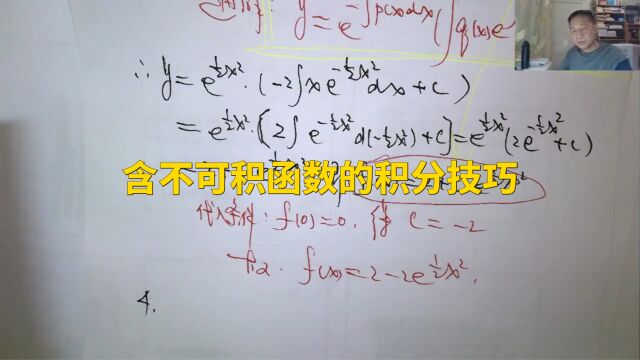 y=e^{-∫p(x)dx}(∫q(x)e
∴ y=e^{½x²}·(-2∫xe^{-½x²}dx+c)
=e^{½x²}·[2∫e^{-½x²}d(-½x²)+c]=e^{½x²}(2e^{-½x²}+c)
含不可积函数的积分技巧
代入条件:f(0)=0, 得 c=-2
f(x)=2-2e^{½x²}.
4.